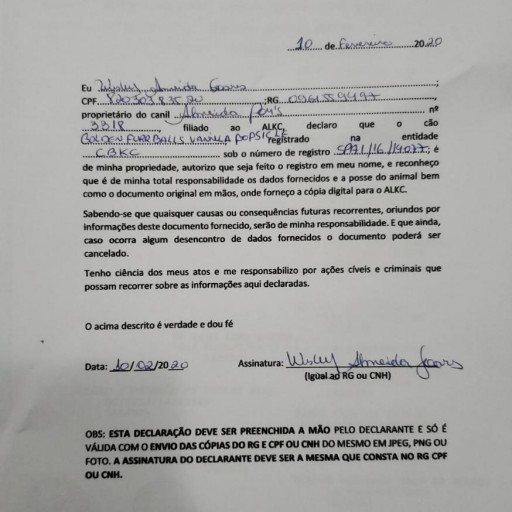 10 de Fevereiro 2020
Eu Weslley Almeida Soares ;
CPF ;RG 0961559497 ,
proprietário do canil Almeida , nº
3318 , filiado ao ALKC declaro que o cão
GOLDEN FURR BALLS VANILLA POPSICLE registrado na entidade
CBKC sob o número de registro , é
de minha propriedade, autorizo que seja feito o registro em meu nome, e reconheço
que é de minha total responsabilidade os dados fornecidos e a posse do animal bem
como o documento original em mãos, onde forneço a cópia digital para o ALKC.
Sabendo-se que quaisquer causas ou consequências futuras recorrentes, oriundos por
informações deste documento fornecido, serão de minha responsabilidade. E que ainda,
caso ocorra algum desencontro de dados fornecidos o documento poderá ser
cancelado.
Tenho ciência dos meus atos e me responsabilizo por ações cíveis e criminais que
possam recorrer sobre as informações aqui declaradas.
O acima descrito é verdade e dou fé
Data: 10/02/2020 Assinatura: Almeida Soares
(Igual ao RG ou CNH)
OBS: ESTA DECLARAÇÃO DEVE SER PREENCHIDA A MÃO PELO DECLARANTE E SÓ É
VÁLIDA COM O ENVIO DAS CÓPIAS DO RG E CPF OU CNH DO MESMO EM JPEG, PNG OU
FOTO. A ASSINATURA DO DECLARANTE DEVE SER A MESMA QUE CONSTA NO RG CPF
OU CNH.